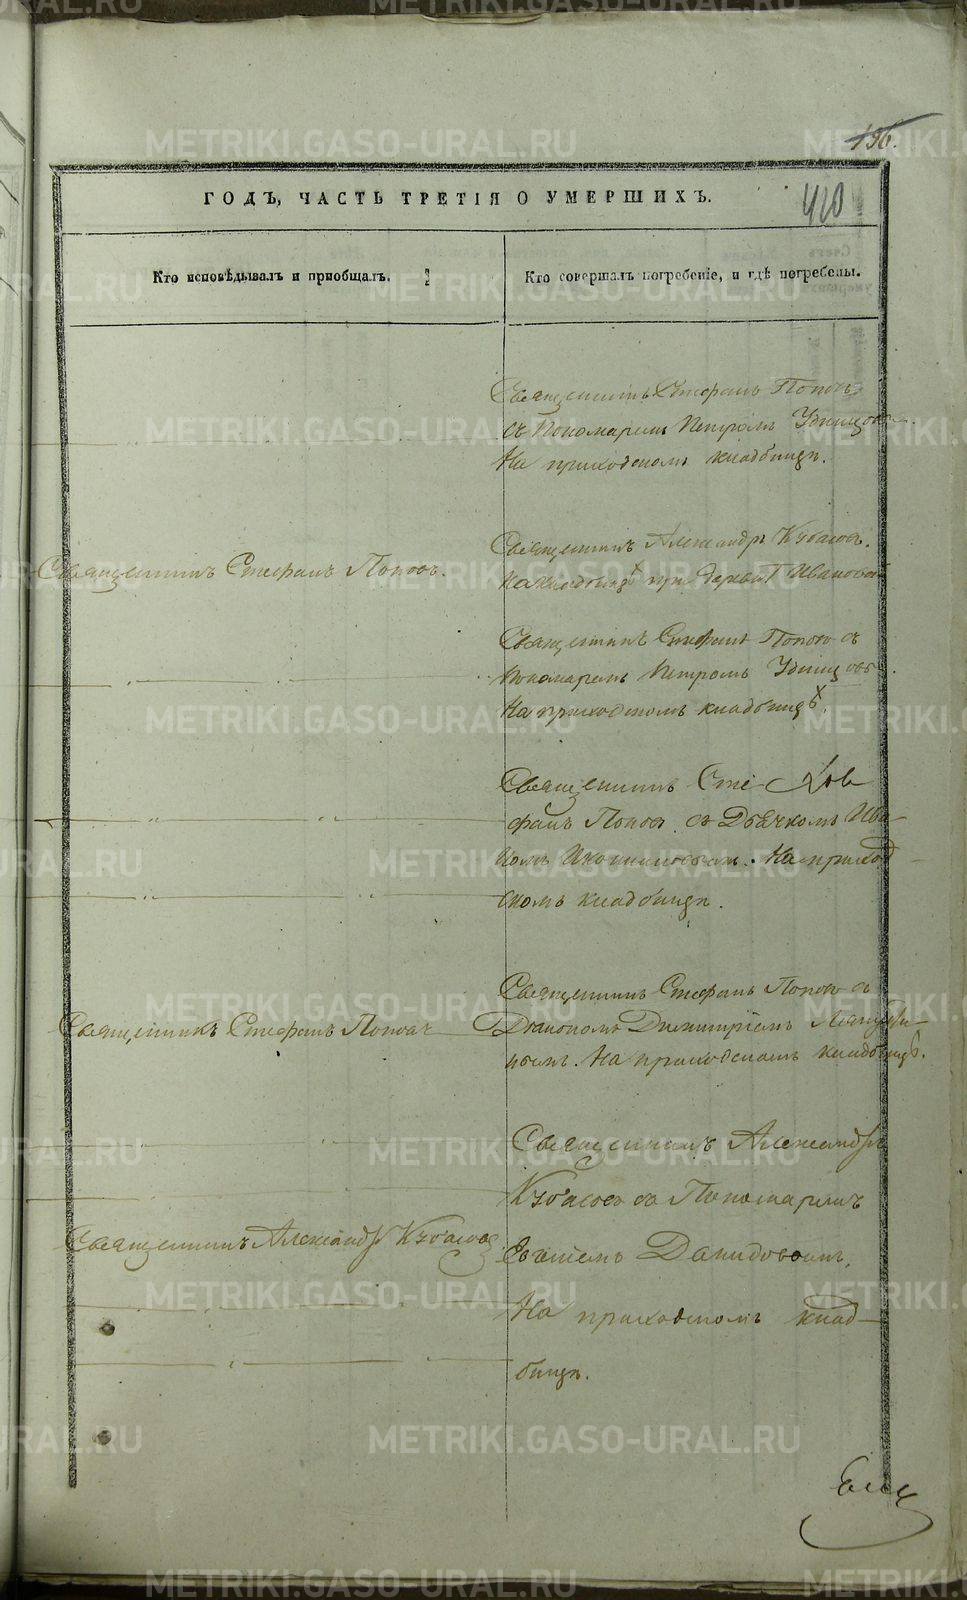 196.
420
ГОДЪ, ЧАСТЬ ТРЕТІЯ О УМЕРШИХЪ.
Кто исповѣдывалъ и пріобщалъ.
Кто совершалъ погребеніе, и гдѣ погребены.
Священникъ Стефанъ Поповъ
съ Пономаремъ Петромъ
На приходскомъ кладбищѣ.
Священникъ Стефанъ Поповъ.
Священникъ Александръ Кубасовъ.
На кладбищѣ при
Священникъ Стефанъ Поповъ съ
Пономаремъ Петромъ
На приходскомъ кладбищѣ.
Священникъ Сте-
фанъ Поповъ съ Дьячкомъ Ива-
номъ На приход-
скомъ кладбищѣ.
Священникъ Стефанъ Поповъ
Священникъ Стефанъ Поповъ съ
Діакономъ Димитріемъ
нымъ. На приходскомъ кладбищѣ.
Священникъ Александръ Кубасовъ
Священникъ Александръ
Кубасовъ съ Пономаремъ
Давидовымъ,
На приходскомъ клад-
бищѣ.
METRIKI.GASO-URAL.RU